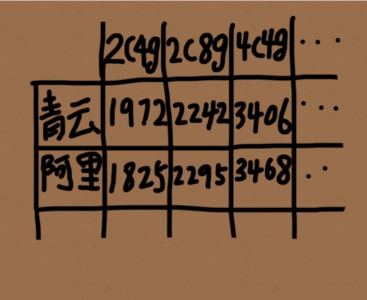 2C4g 2C8g 4C4g ...
青云 1972 2242 3406 ...
阿里 1825 2295 3468 ..